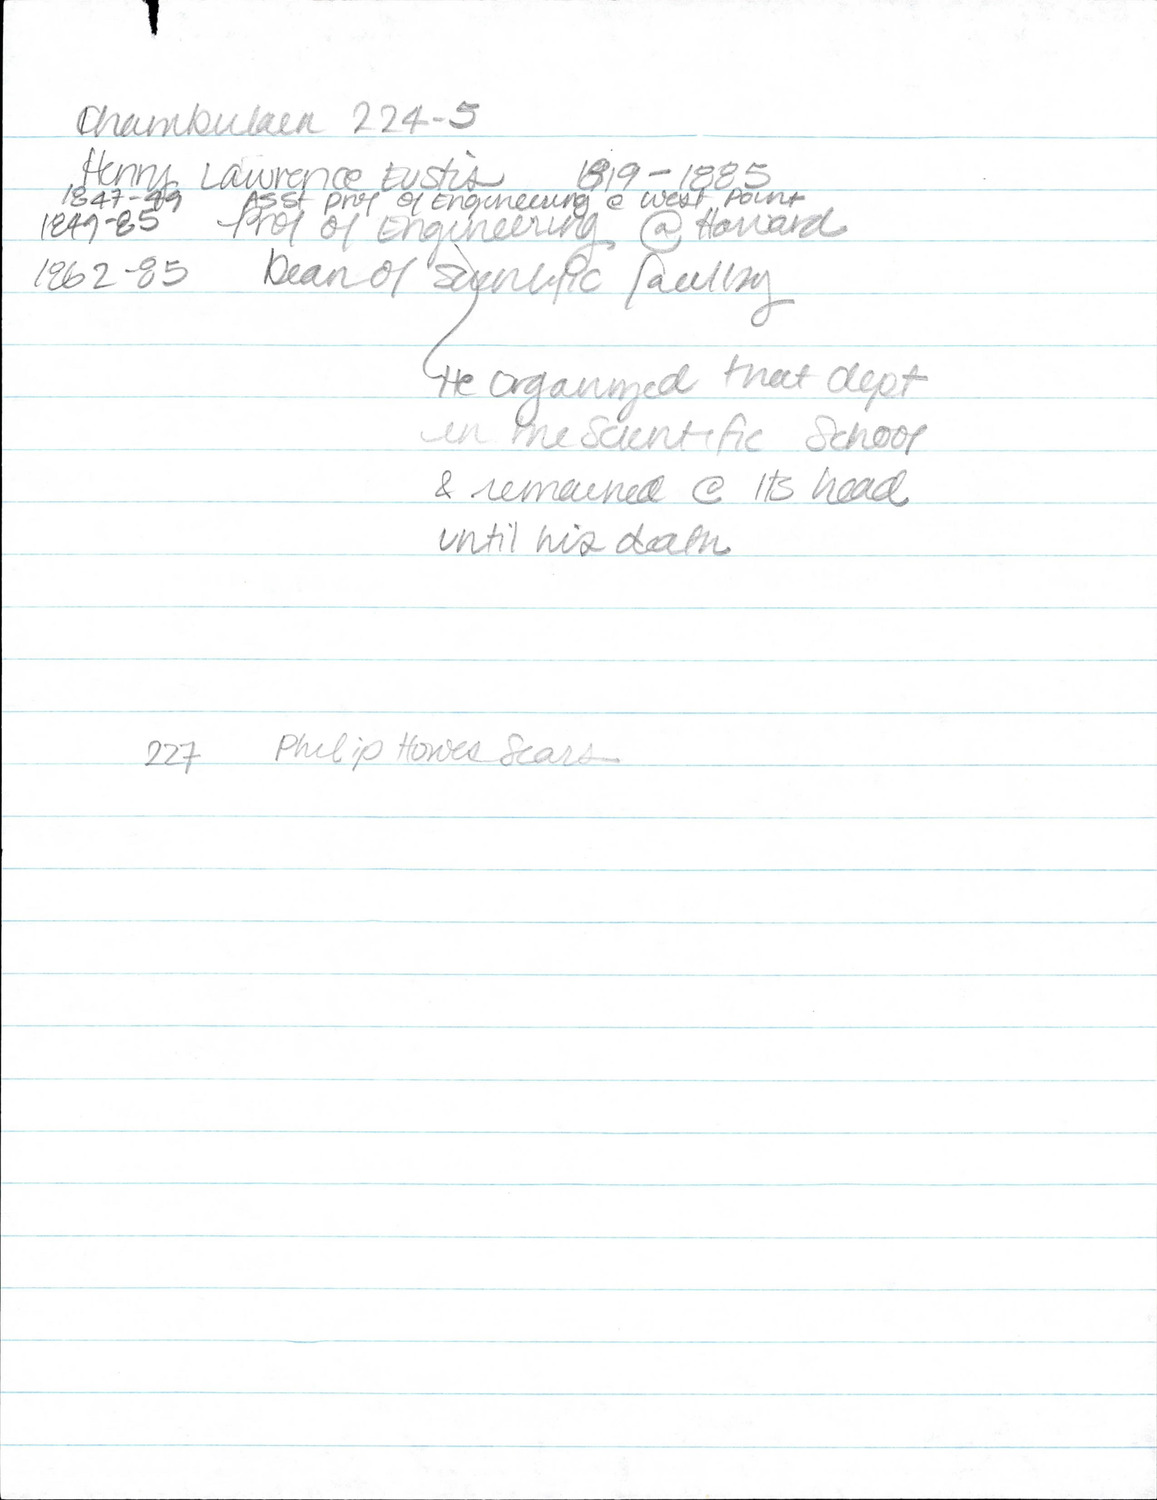 Chamberlain 224-5
Henry Lawrence Eustis 1819-1885
1847-49 Asst Prof of Engineering @ West Point
1849-85 Prof of Engineering @ Harvard
1862-85 Dean of Scientific Faculty
He organized that dept
in the Scientific School
& remained @ its head
until his death
227 Philip Howes Sears